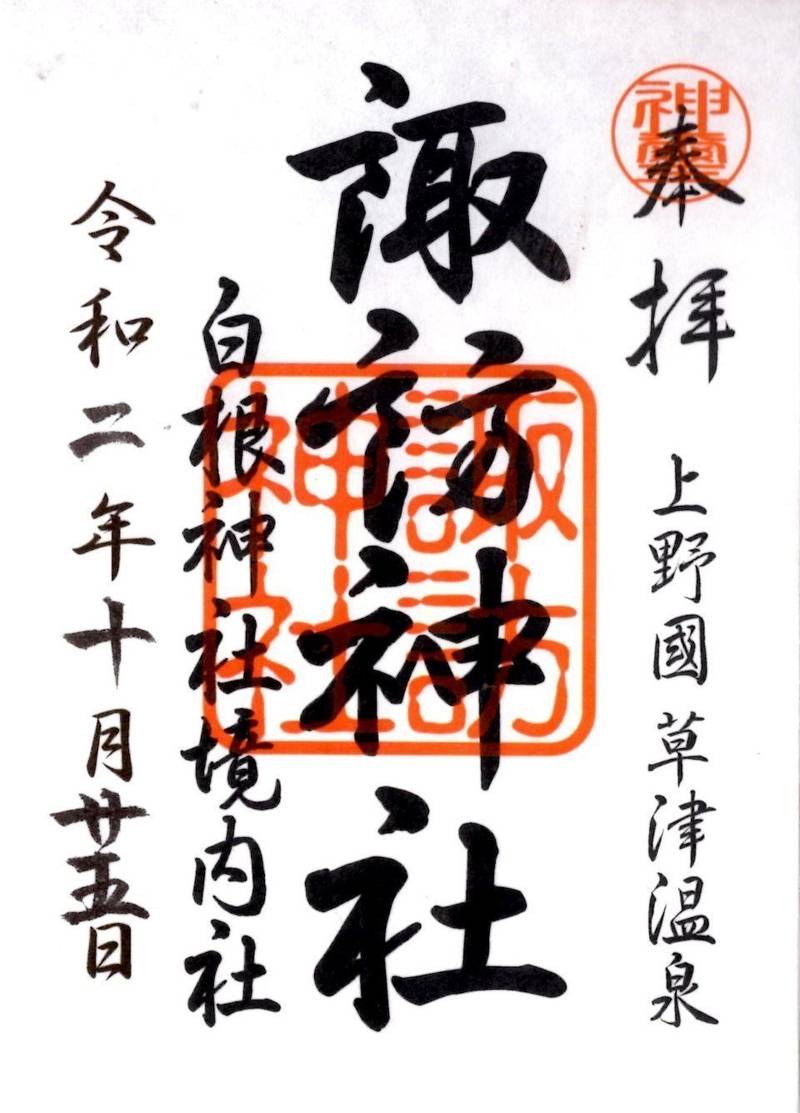 奉拝
上野國草津温泉
諏訪神社
諏訪
神社
白根神社境内社
令和二年十月廿五日